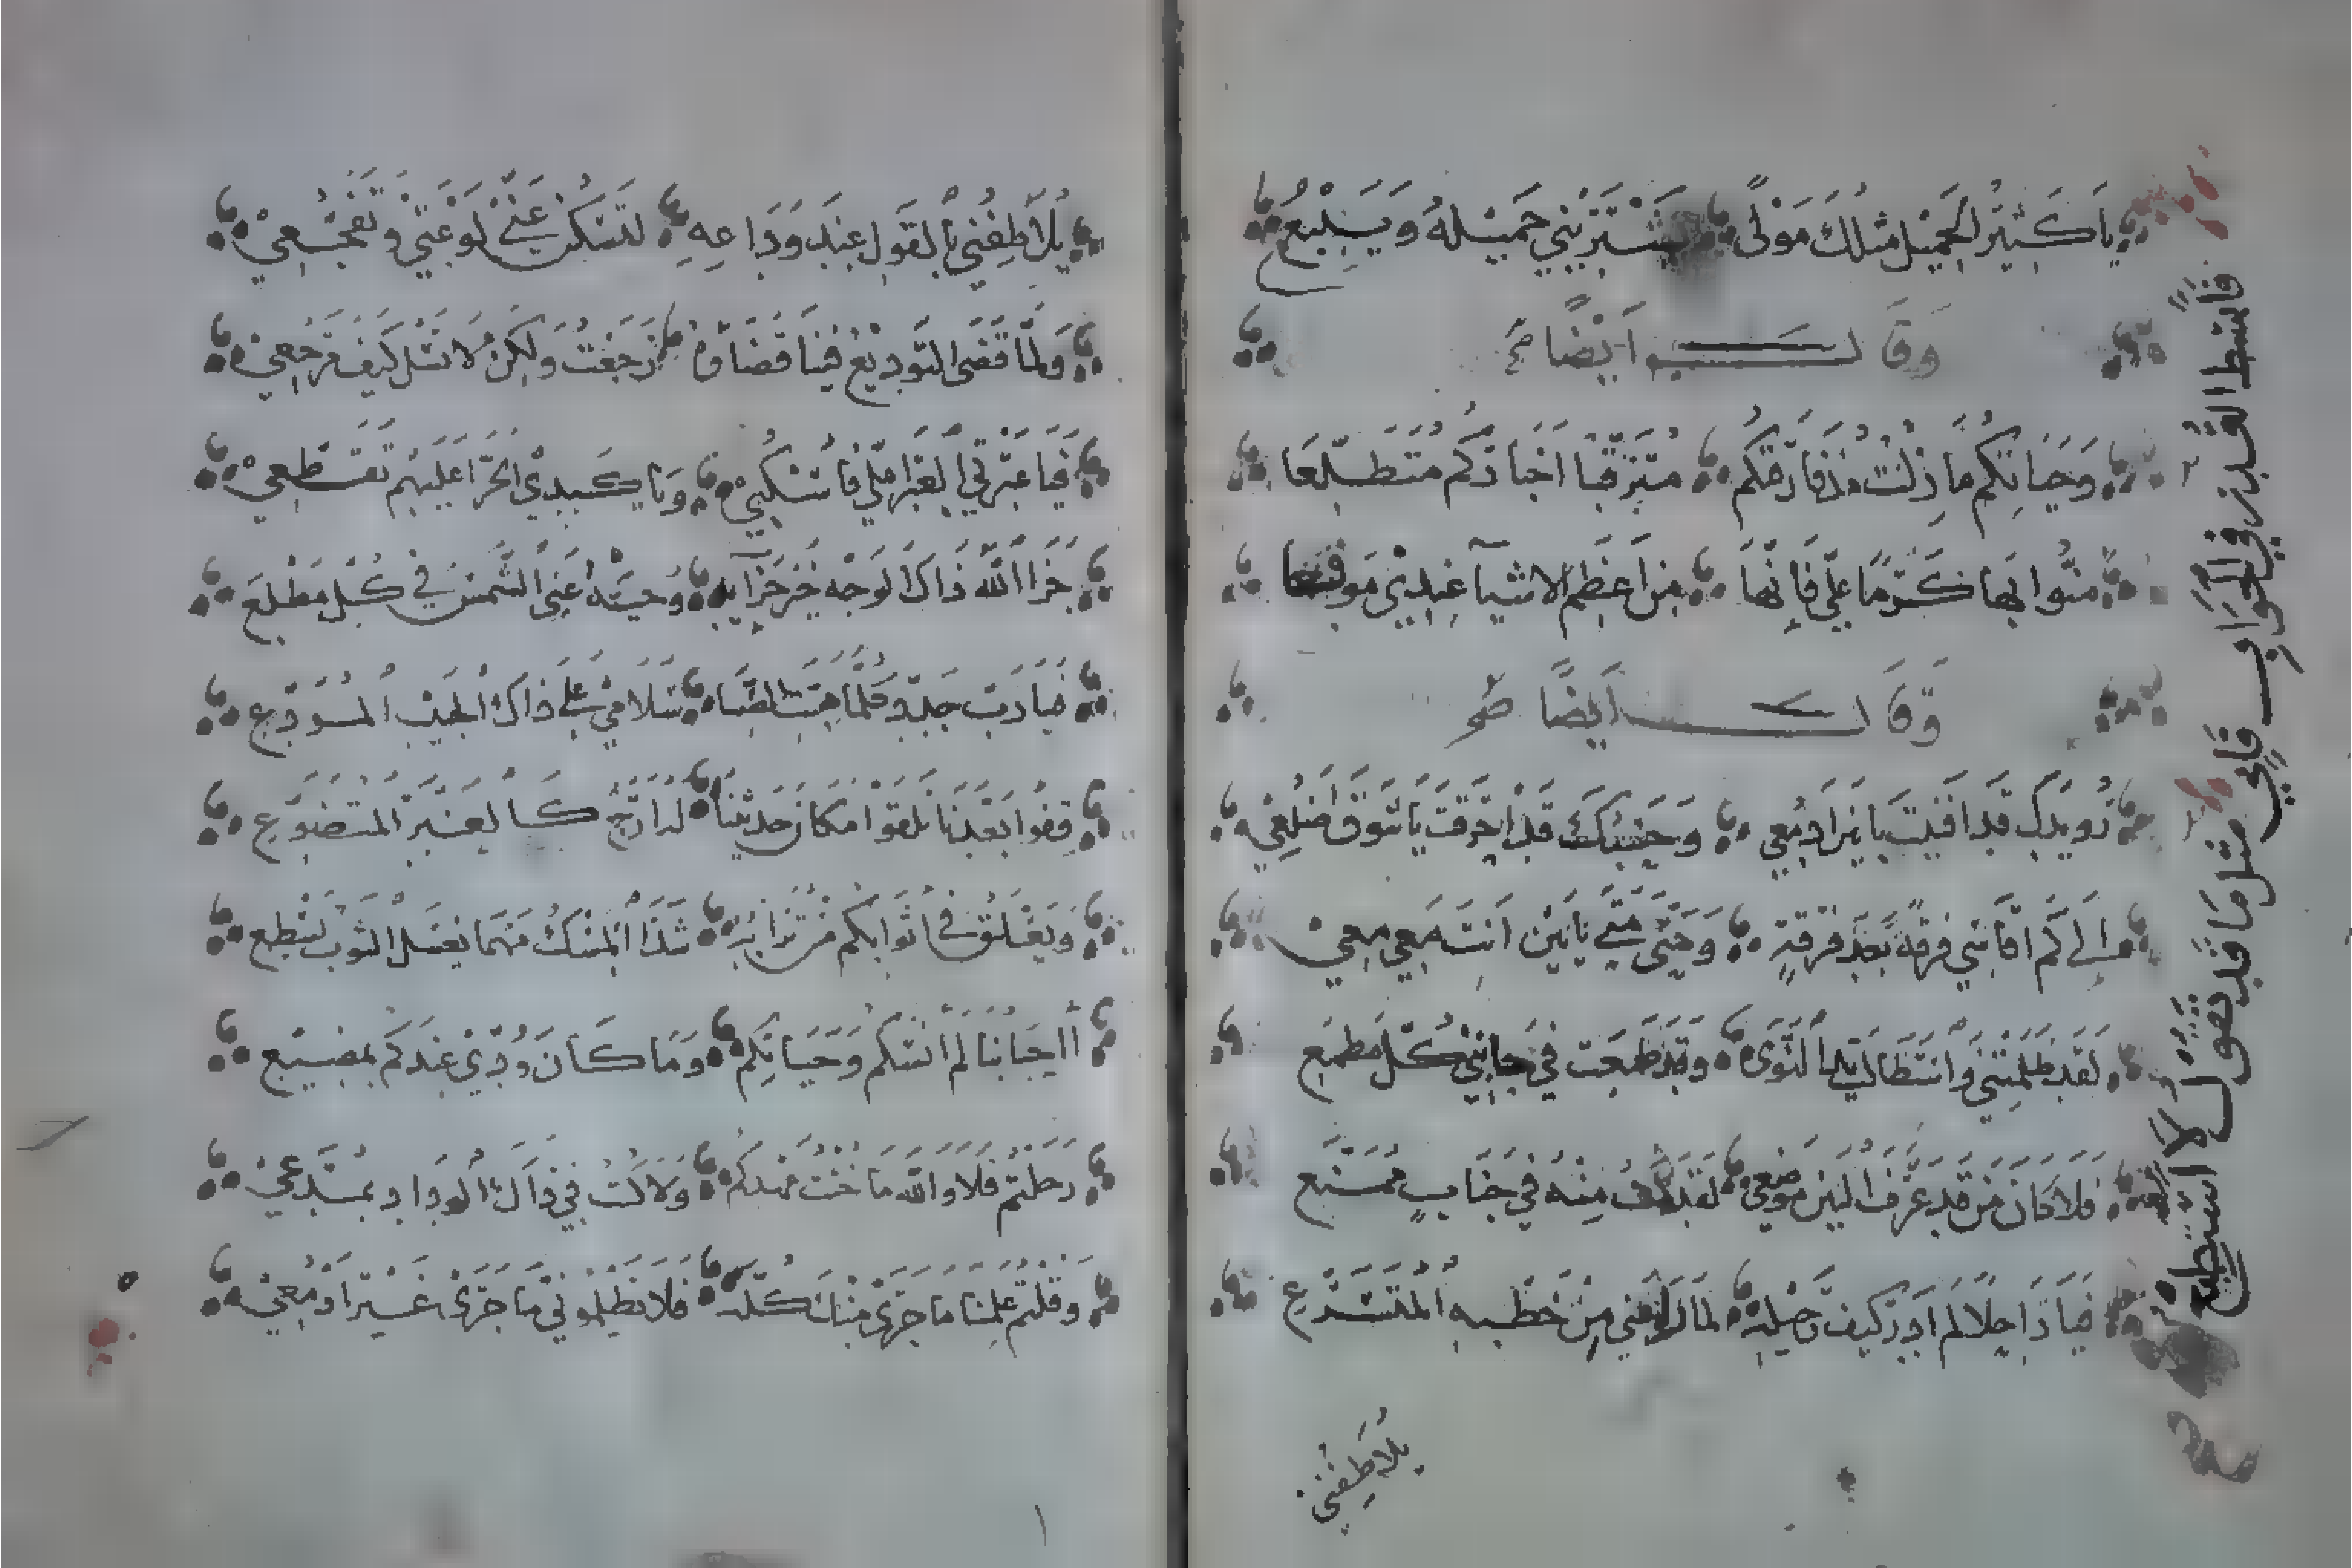 يَا كَثِيْرَ الْجَمِيْلِ مِثْلُكَ مَوْلًى يَشْتَرِيْنِي جَمِيْلُهُ وَيَبِيْعُ
وَقَالَ اَيْضًا
وَحَيَاتِكُم مَا زِلْتُ مُذْ فَارَقْتُكُم مُتَرَقِّبًا اَخْبَارَكُم مُتَطَلِّعَا
مُنُّوا بِهَا كَرَمًا عَلَيَّ فَاِنَّهَا مِنْ اَعْظَمِ الاشْيَآ عِنْدِيْ مَوْقِعَا
وَقَالَ اَيْضًا
رُوَيْدَكَ قَدْ اَفْنَيْتَ يَا بَيْنَ اَدْمُعِي وَحَسْبُكَ قَدْ اَحْرَقْتَ يَا شَوْقُ اَضْلُعِي
اِلَى كَمْ اُقَاسِي فُرْقَةً بَعْدَ فُرْقَةٍ وَحَتَّى مَتَى يَا بَيْنُ اَنْتَ مَعِي مَعِيْ
لَقَدْ ظَلَمَتْنِي وَاسْتَطَالَتْ يَدُ النَّوَى وَقَدْ طَمِعَتْ فِي جَانِبِي كُلَّ مَطْمَعِ
فَلَا كَانَ مَنْ قَدْ عَرَّفَ الْبَيْنَ مَوْضِعِي لَقَدْ كُنْتُ مِنْهُ فِي جَنَابٍ مُمَنَّعِ
فَيَا رَاحِلًا لَمْ اَدْرِ كَيْفَ رَحِيْلُهُ لِمَا رَاعَنِي مِنْ خَطْبِهِ الْمُتَسَرِّعِ
يُلَاطِفُنِي
فَابْسُطِ الْعُذْرَ فِي الْجَوَابِ فَاِنِّي مِثْلَ مَا قَدْ تَقُولُ لَا اَسْتَطِيْعُ
يُلَاطِفُنِي بِالْقَوْلِ عِنْدَ وَدَاعِهِ لِتَسْكُنَ عَنِّي لَوْعَتِي وَتَفَجُّعِيْ
وَلَمَّا قَضَى التَّوْدِيْعُ فِيْنَا قَضَاءَهُ رَجَعْتُ وَلَكِنْ لَا تَسَلْ كَيْفَ مَرْجِعِيْ
فَيَا عَبْرَتِي الْعَبْرَا عَلَيَّ فَاسْكُبِيْ وَيَا كَبِدِيْ الْحَرَّا عَلَيْهِمْ تَقَطَّعِيْ
جَزَا اللّٰهُ ذَاكَ الْوَجْهَ خَيْرَ جَزَآئِهِ وَحَيَّتْهُ عَنِّي الشَّمْسُ فِي كُلِّ مَطْلَعِ
فَيَا رَبِّ جَدِّدْ كُلَّمَا هَبَّتِ الصَّبَا سَلَامِي عَلَى ذَاكَ الْحَبِيْبِ الْمُوَدِّعِ
قِفُوا بَعْدَنَا تَلْقَوْا مَكَانَ حَدِيْثِنَا لَهُ اَرَجٌ كَالْعَنْبَرِ الْمُتَضَوِّعِ
وَيَعْلَقُ فِي اَثْوَابِكُم مِنْ تُرَابِهِ شَذَا الْمِسْكِ مَهْمَا يُغْسَلِ الثَّوْبُ يَسْطَعِ
اَاَحْبَابَنَا لَمْ اَنْسَكُم وَحَيَاتِكُم وَمَا كَانَ وُدِّيْ عِنْدَكُم بِمُضَيَّعِ
رَحَلْتُم فَلَا وَاللّٰهِ مَا خُنْتُ عَهْدَكُم وَلَا كُنْتُ فِي ذَاكَ الْوِدَادِ بِمُدَّعِيْ
وَقُلْتُم عَلِمْنَا مَا جَرَى مِنْكَ كُلَّهُ فَلَا تَظْلِمُونِي مَا جَرَى غَيْرَ اَدْمُعِيْ